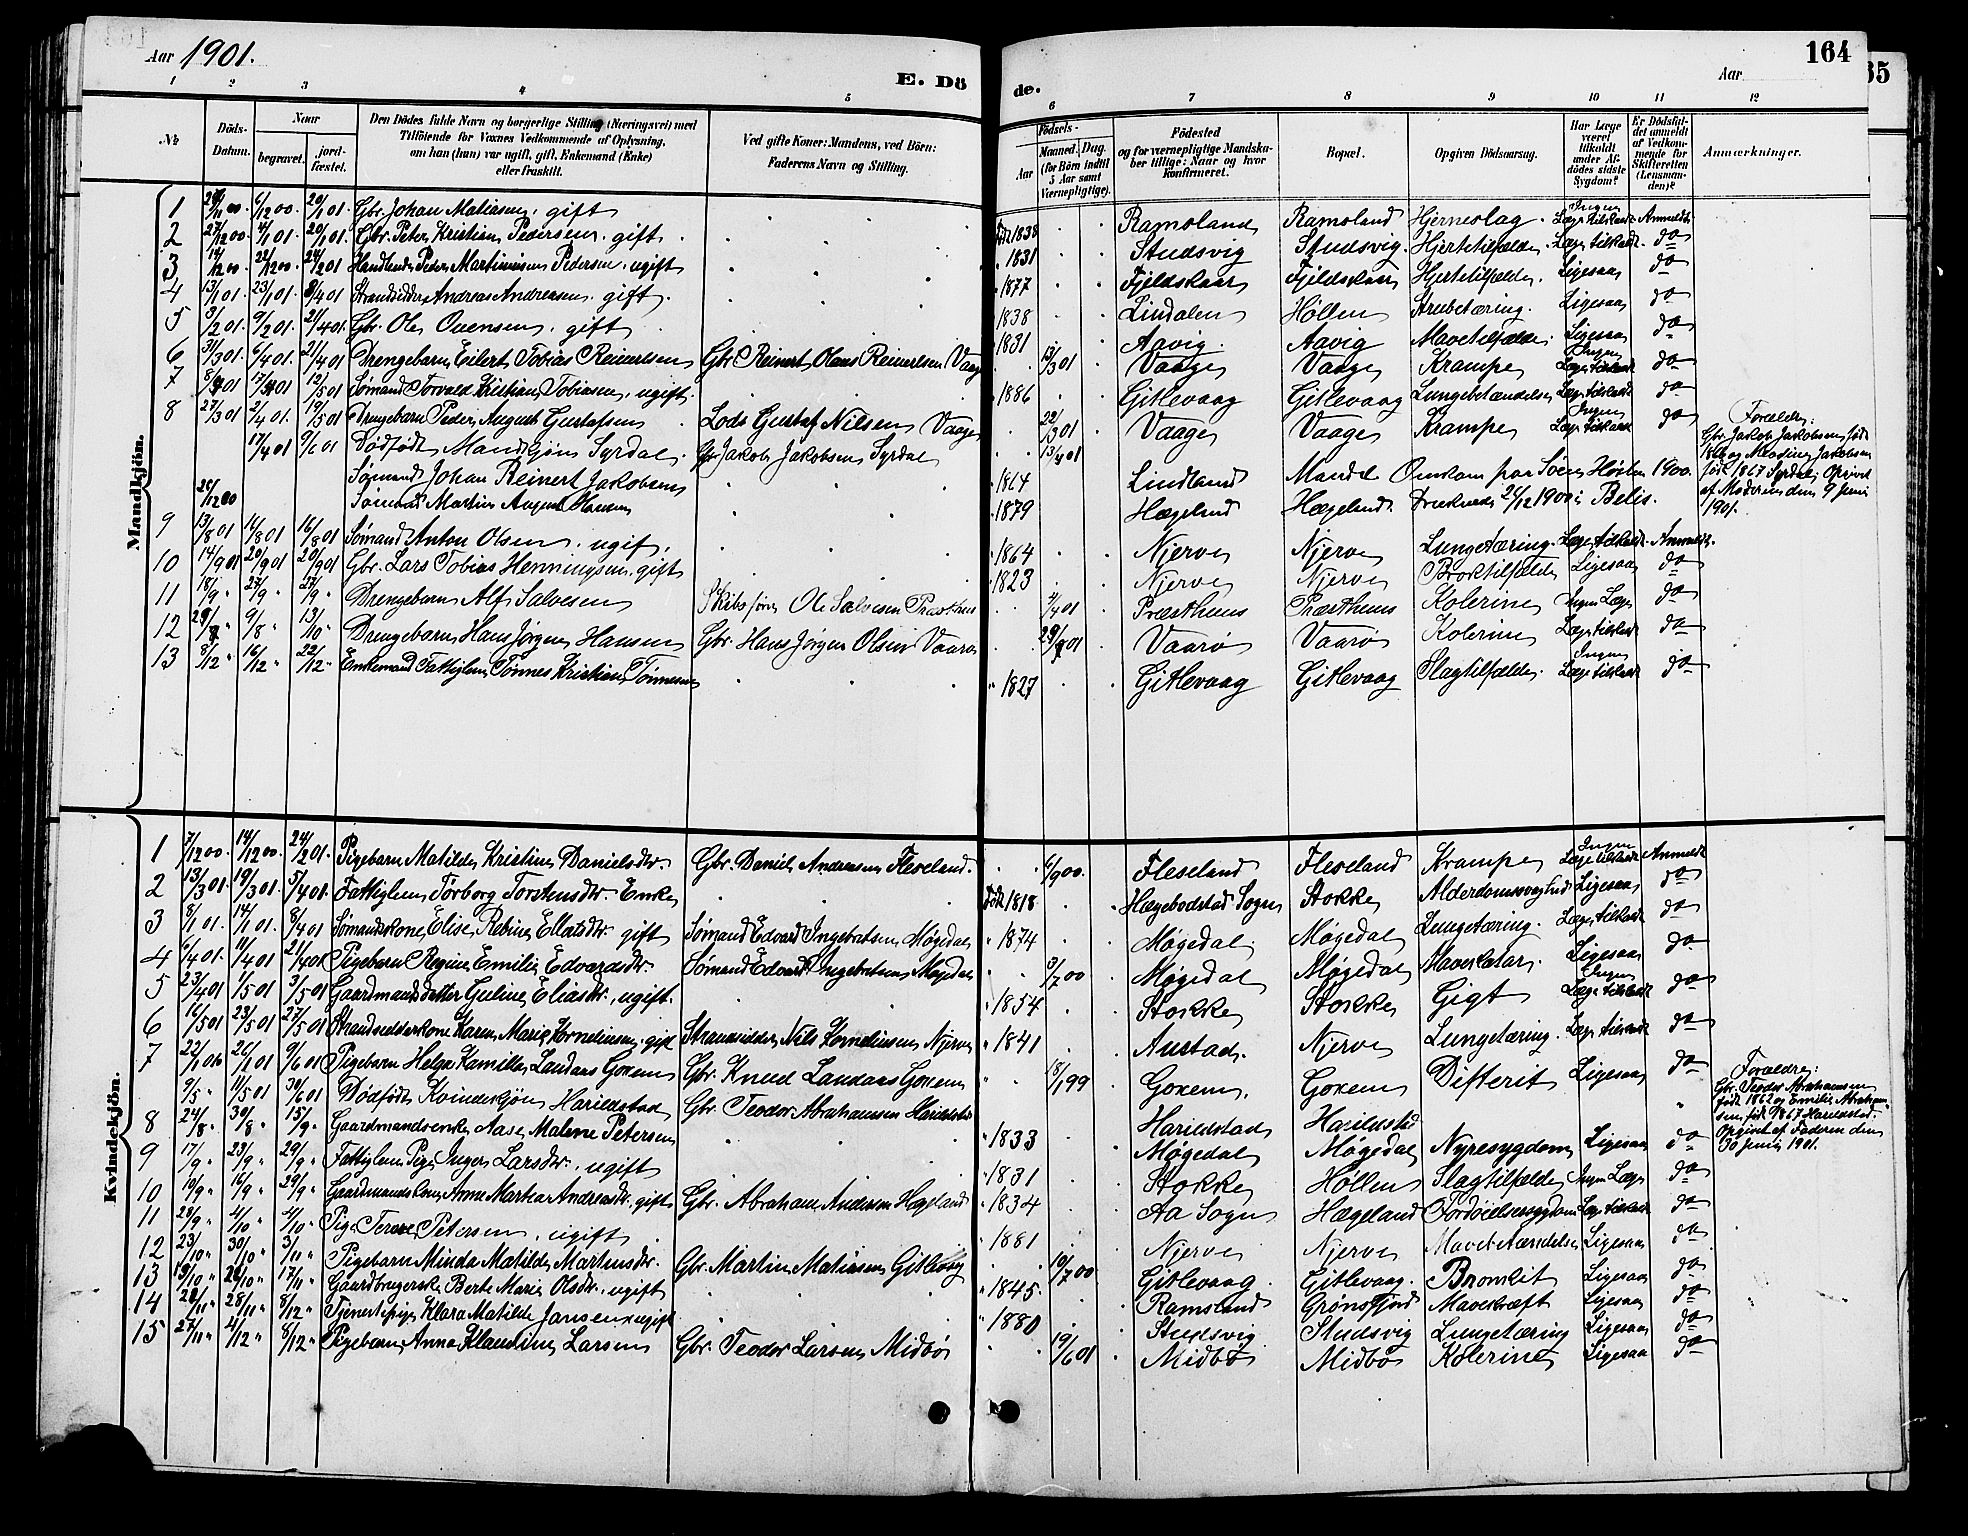 Aar 1901.
E. Dö
de.
Aar
164
1 2 3 4 5 6 7 8 9 10 11 12
№
Döds-Datum.
Naar
begravet.
jord-fæstet.
Den Dödes fulde Navn og borgerlige Stilling (Næringsvei) med Tilföiende for Voxnes Vedkommende af Oplysning, om han (hun) var ugift, gift, Enkemand (Enke) eller fraskilt.
Ved gifte Koner: Mandens, ved Börn: Faderens Navn og Stilling.
Födsels-
Aar
Maaned. Dag.
(for Börn indtil 5 Aar samt Værnepligtige).
Födested og for værnepligtige Mandskaber tillige: Naar og hvor konfirmeret.
Bopæl.
Opgiven Dödsaarsag.
Har Læge været tilkaldt under Afdödes sidste Sygdom?
Er Dödsfaldet anmeldt af Vedkommende for Skifteretten (Lensmanden)?
Anmærkninger.
Mandkjön.
1 6/12 00. 20/1 01. Gbr. Johan Matiasen, gift 1838 Ramsland Ramsland Hjerneslag. Ingen Læge tilkaldt Anmeldt.
2 27/12 00. 4/1 01. 20/1 01. Gbr. Peter Kristian Pedersen, gift 1831 Studsvig Studsvig Hjertetilfælde Læge tilkaldt do
3 14/12 00. 22/12 00. 24/2 01 Handlende Peder Martinius Pedersen, ugift 1877 Fjeldskaar Fjeldskaar Hjertetilfælde. Ligesaa do
4 13/1 01. 23/1 01. 8/4 01 Strandsidder Andreas Andreasen, gift. 1838 Lindalen Höllen Strubetæring. Ligesaa do
5 3/2 01. 9/2 01. 21/4 01. Gbr. Ole Ovensen, gift 1831 Aavig. Aavig Mavetilfælde. Ligesaa do
6 31/3 01. 6/4 01. 21/4 01 Drengebarn Eilert Tobias Reinertsen Gbr. Reinert Olaus Reinertsen Vaage 13/3 01 Vaage Vaage Krampe Ingen Læge tilkaldt do
7 12/5 01 Sømand Torvald Kristian Tobiasen, ugift. 1886 Gitlevaag Gitlevaag Lungebetændelse Læge tilkaldt do
8 27/3 01 2/4 01. 19/5 01 Drengebarn Peder August Gustafsen Lods Gustaf Nilsen Vaage 22/3 01 Vaage Vaage Krampe Ingen Læge tilkaldt do
17/4 01 9/6 01 Dødfødt Mandkjøn Syrdal. Gbr Jakob Jakobsen Syrdal 13/4 01
Sømand Johan Reinert Jakobsen 1864 Lindland Mandal Omkom paa Søen Høsten 1900.
12 00 Sømand Martin August Hansen 1879 Hægeland Hægeland. Druknede 21/12 1900 i Belis.
Forældre: Gbr. Jakob Jakobsen født og Jakobsen født 1867 Syrdal; Opgivet af Moderen den 9 Juni 1901.
9 13/8 01 16/8 01 16/8 01 Sømand Anton Olsen, ugif. 1864 Njerve Njerve Lungetæring. Læge tilkaldt. Anmeldt.
10 14/9 01 20/9 01 20/9 01 Gbr. Lars Tobias Henningsen, gift 1823 Njerve Njerve Broktilfælde Ligesaa do
11 18/9 " 27/9 " 27/9 " Drengebarn Alf Salvesen Skibsfører Ole Salvesen Præsthus 2/4 01 Præsthuus Præsthuus Kolerine Ingen Læge do
12 9/8 " 13/10 " Drengebarn Hans Jörgen Hansen Gbr. Hans Jörgen Olsen Vaarø Vaarø Vaarø Kolerine Læge tilkaldt do
13 8/12 " 16/12 " 22/12 " Enkemand Fattiglem Tönnes Kristian Tönnesen 1827 Gitlevaag Gitlevaag Slagtilfælde. Ingen Læge tilkaldt do
Kvindekjön.
1 7/12 00. 14/12 00. 24/2 01. Pigebarn Matilde Kristine Danielsdtr. Gbr. Daniel Andreasen Fleseland. 6/9 00. Fleseland Fleseland Krampe Ingen Læge tilkaldt Anmeldt
2 13/3 01. 19/3 01. 5/4 01. Fattiglem Torborg Torstensdtr. Enke Født 1818 Hægebostad Sogn Stokke Alderdomssvaghed Ligesaa do
3 8/1 01. 14/1 01. 8/4 01 Sømandskone Elise Rebine Ellatsdtr. gift Sømand Edvard Ingebretsen Møgedal 1874 Møgedal. Møgedal Lungetæring. Læge tilkaldt do
4 6/4 01. 11/4 01 21/4 01 Pigebarn Regine Emilie Edvardsdtr. Sømand Edvard Ingebretsen Møgedal 3/7 00 Møgedal Møgedal Mavekatar. Ligesaa do
5 23/4 01 1/5 01 3/5 01 Gaardmandsdatter Guline Eliasdtr., ugift. 1854 Stokke Stokke Gigt Ingen Læge tilkaldt do
6 16/5 01 23/5 01 27/5 01 Strandsidderkone Karen Marie Kornelius, gift Strandsidder Nils Korneliusen Njerve 1841 Austad. Njerve Lungetæring. Læge tilkaldt do
7 26/1 01 9/6 01 Pigebarn Helga Kamilla Laudaas Goxem Gbr. Knud Laudaas Goxem 18/1 99 Goxem. Goxem Difterit Ligesaa do
9/5 " 11/5 01 30/6 01 Dødfødt Kvindekjön Harildstad Gbr. Teodor Abrahamsen Harildstad Harildstad Harildstad
Forældre: Gbr. Teodor Abrahamsen født 1862 og Emilie Abrahamsen, født 1867 Harildstad. Opgivet af Faderen den 30 Juni 1901.
8 24/8 " 30/8 " 15/9 " Gaardmandsenke Aase Malene Petersen 1833 Møgedal Møgedal Nyresygdom Ligesaa do
9 17/9 " 23/9 " 29/9 " Fattiglem Pige Inger Larsdtr., ugift 1831 Stokke Höllen Slagtilfælde Ingen Læge do
10 10/9 " 16/9 " 29/9 " Gaardmandskone Anne Marta Andreasdtr. gift Gbr. Abraham Andersen Hægeland 1834 Aa Sogn Hægeland Fordøielsessygdom Læge tilkaldt do
11 28/9 " 4/10 " 4/10 " Pige Terese Petersen, ugift 1881 Njerve Njerve Mavebetændelse Ligesaa do
12 23/10 " 30/10 " 3/11 " Pigebarn Minda Matilde Martinsdtr. Gbr. Martin Matiasen Gitlevåg 19/7 00 Gitlevaag. Gitlevaag. Bronkit Ligesaa do
13 19/10 " 17/11 " Gaardbrugerske Berte Marie Olsdtr., ugift 1845. Ramsland Grønsfjord Mavekræft Ligesaa do
14 28/11 " 8/12 " Tjenestepige Klara Matilde Jansen ugift 1880 Studsvig Studsvig Lungetæring Ligesaa do
15 27/11 " 4/12 " 8/12 " Pigebarn Anna Klaudine Larsen Gbr. Teodor Larsen Midbø 19/6 01 Midbø Midbø Kolerine Ligesaa do